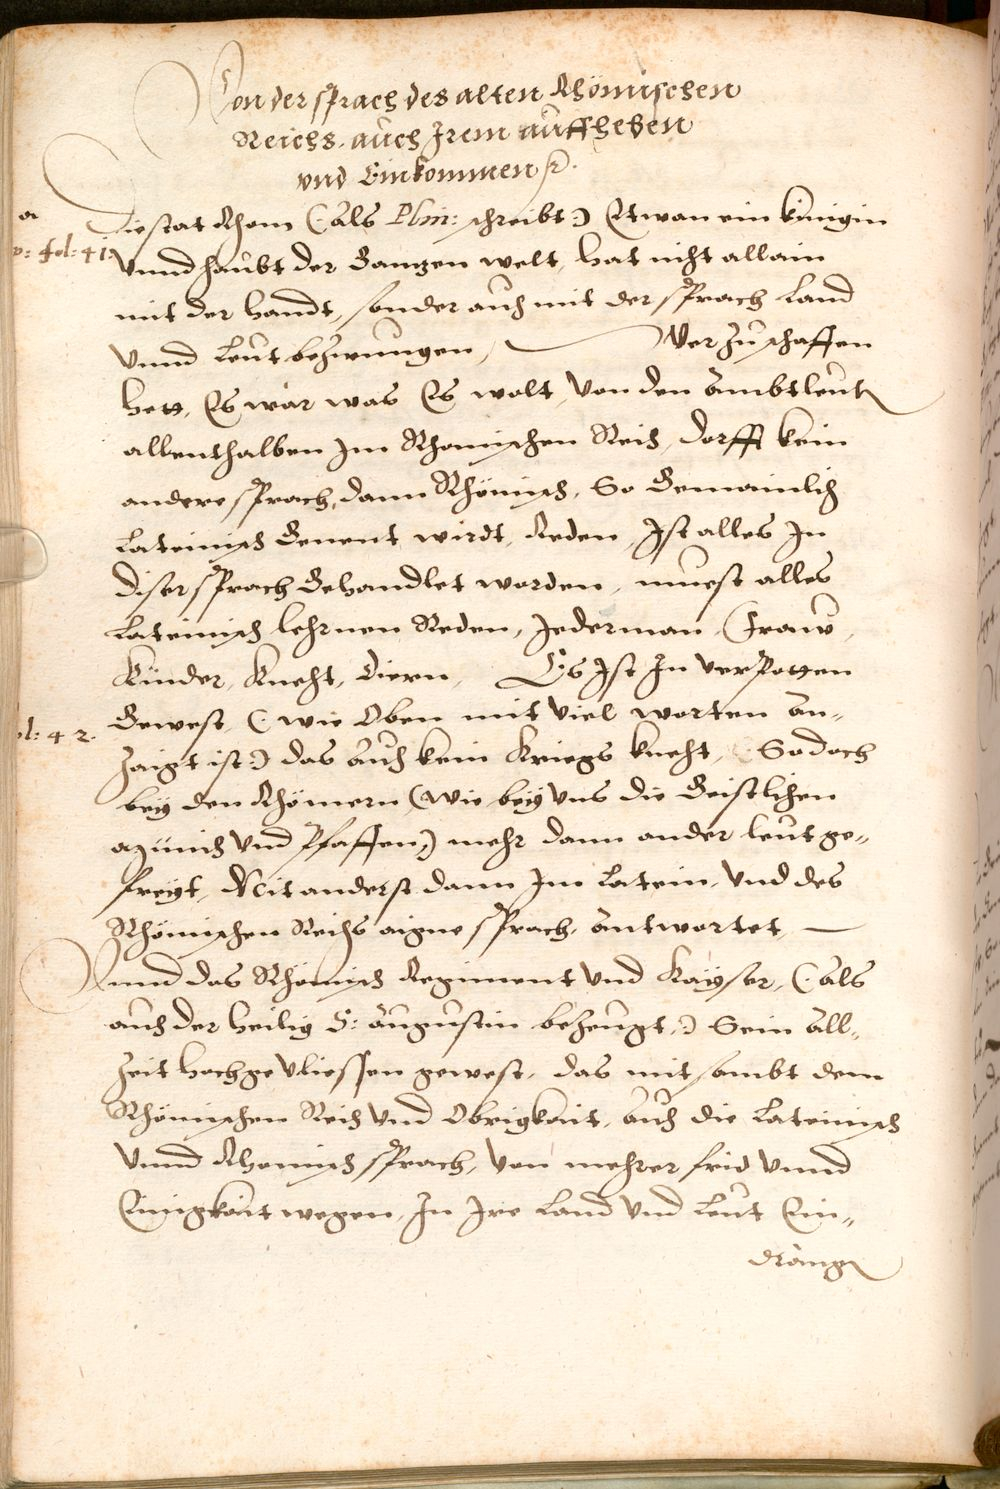 Von der sprach des alten Rhömischen
Reichs. auch Irem auffheben
vnd Einkommen
Die stat Rhom (: als Plin: schreibt :) Etwan ein künigin
Vnnd haubt der Gantzen welt, hat nicht allain
mit der handt, sonder auch mit der sprach Land
Vnnd Leut bezwungen, Wer zu schaffen
hett, Es wär was Es wolt, Von den Ambtleutn
allenthalben Im Rhomischen Reich, dorfft kein
andere sprach, dann Rhömisch, So Gemainlich
Lateinisch Genent wirdt, Reden, Ist alles In
diser sprach Gehandlet worden, muest alles
Lateinisch lehrnen Reden, Jederman, Fraw,
Kinder, Knecht, Diern, Es Ist In verpotten
Gewest, (: wie Oben mit Viel worten An-
zaigt ist :) das Auch kein Kriegs knecht, (: So doch
bey den Rhömern (wie bey Vns die Geistlichen
Münich Vnd Pfaffen,) mehr dann ander leut ge-
freyt, Nit anderst dann Im Latein, Vnd des
Rhömischen Reichs aigne sprach, Antwortet,
Vnnd das Rhömisch Regiment Vnd Kayser, (: als
auch der heilig S: Augustin bezeugt, :) Sein All-
zeit hochgevliessen gewest, das mit sambt dem
Rhömischen Reich Vnd Obrigkait, auch die Lateinisch
Vnnd Rhomisch sprach, Von mehrer frid Vnnd
Einigkait wegen, In Ire Land Vnd Leut Ein-
dräng
a
p: fol: 41:
ol: 42.